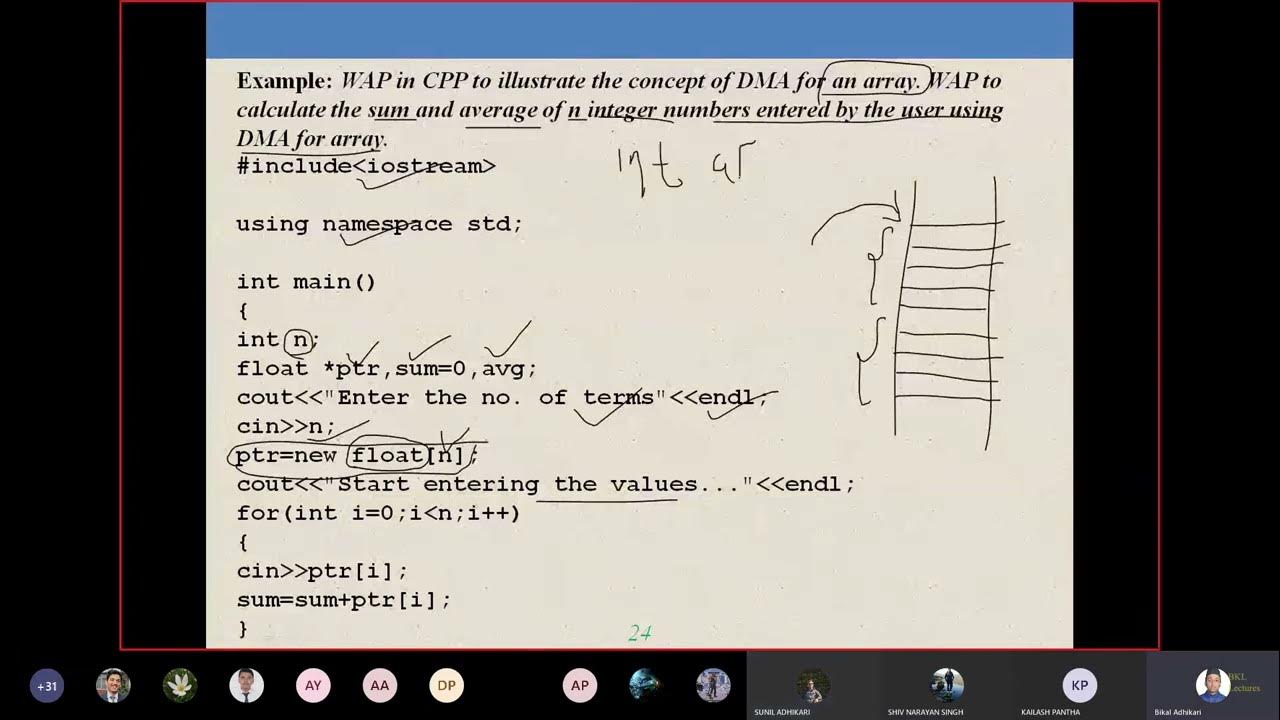 Example: WAP in CPP to illustrate the concept of DMA for an array. WAP to
calculate the sum and average of n integer numbers entered by the user using
DMA for array.
#include<iostream>
int ar
using namespace std;
int main()
{
int n;
float *ptr,sum=0,avg;
cout<<"Enter the no. of terms"<<endl;
cin>>n;
ptr=new float[n];
cout<<"Start entering the values..."<<endl;
for(int i=0;i<n;i++)
{
cin>>ptr[i];
sum=sum+ptr[i];
}
24
+31
AY
AA
DP
AP
KP
BKL
Lectures
SUNIL ADHIKARI
SHIV NARAYAN SINGH
KAILASH PANTHA
Bikal Adhikari